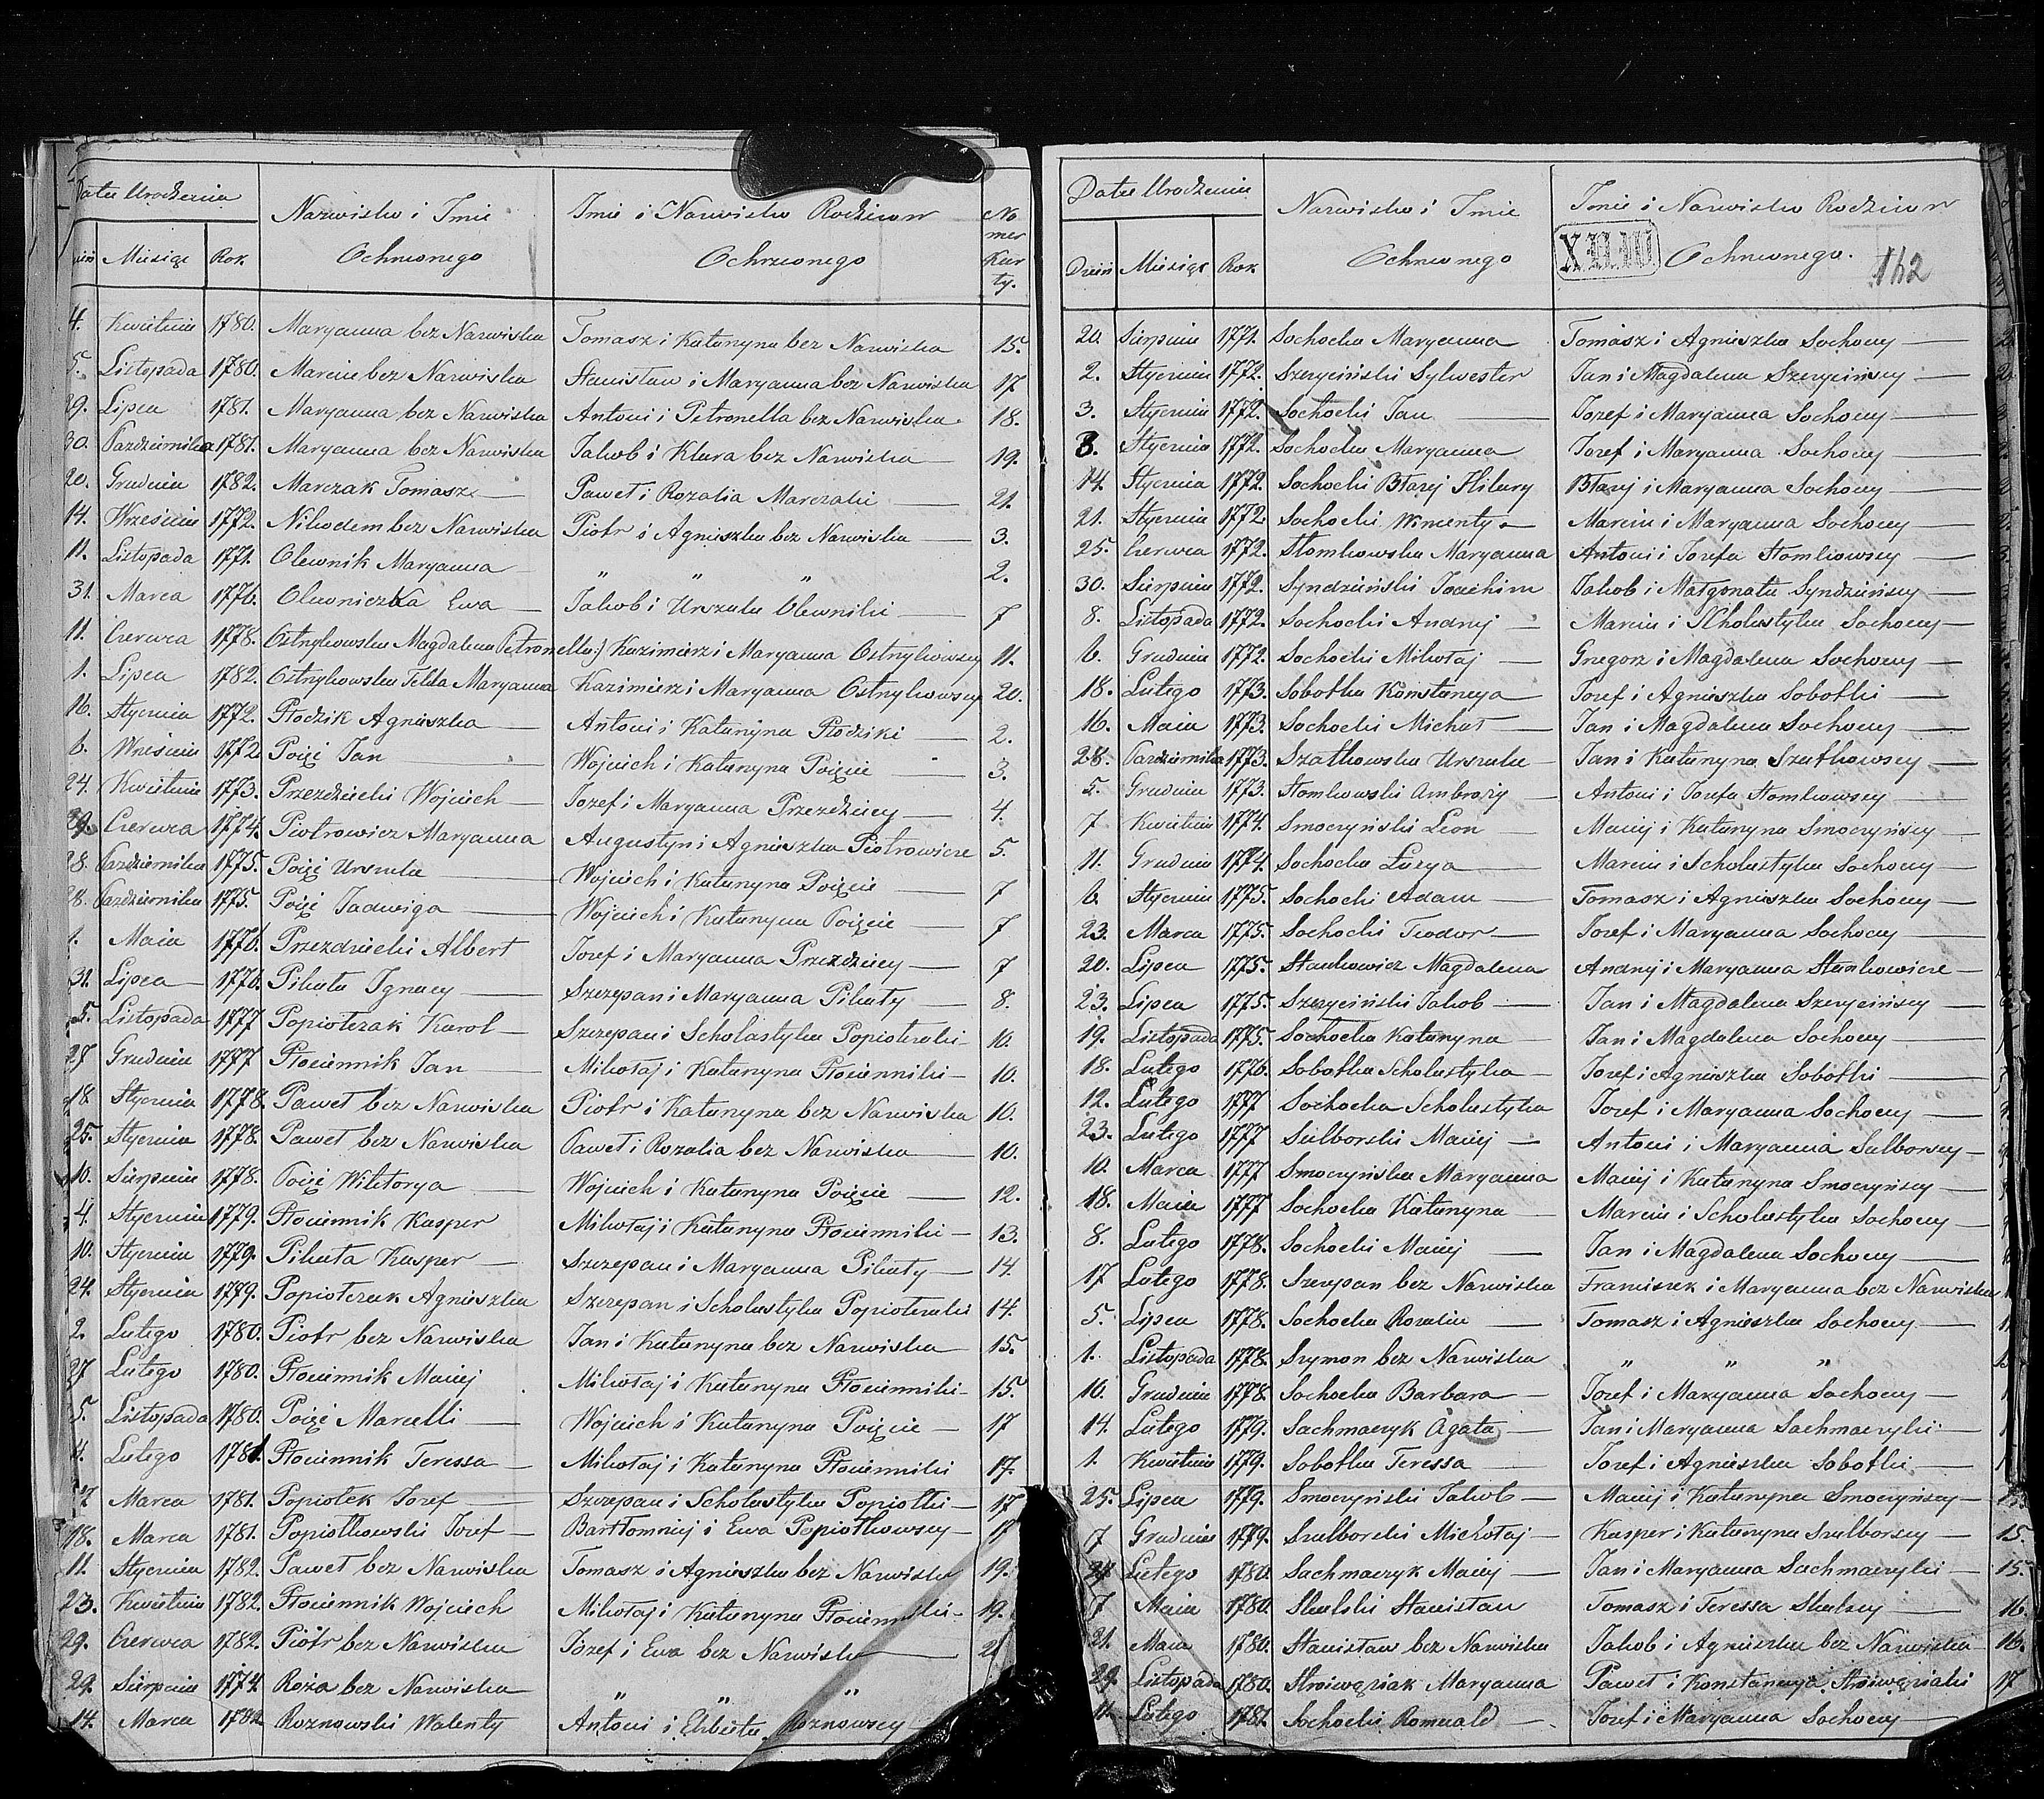 Data Urodzenia Nazwisko i Imie Imie i Nazwisko Rodziców No
Miesiąc Rok Ochrzconego Ochrzconego mer Kar ty.
4. Kwietnia 1780. Maryanna bez Nazwiska Tomasz i Katarzyna bez Nazwiska 15.
5. Listopada 1780. Marcin bez Nazwiska Stanisław i Maryanna bez Nazwiska 17
29. Lipca 1781. Maryanna bez Nazwiska Antoni i Petronella bez Nazwiska 18.
30. Października 1781. Maryanna bez Nazwiska Jakob i Klara bez Nazwiska 19.
20. Grudnia 1782. Marczak Tomasz Paweł i Rozalia Marczaki 21.
14. Września 1772. Nikodem bez Nazwiska Piotr i Agnieszka bez Nazwiska 3.
11. Listopada 1771. Olewnik Maryanna " " " 2.
31. Marca 1776. Olewniczka Ewa Jakob i Urszula Olewniki 7
11. Czerwca 1778. Ostrzykowska Magdalena Petronella:) Kazimierz i Maryanna Ostrzykowscy 11.
1. Lipca 1782. Ostrzykowska Tekla Maryanna Kazimierz i Maryanna Ostrzykowscy 20.
16. Stycznia 1772. Płodzik Agnieszka Antoni i Katarzyna Płodziki 2.
6. Września 1772 Pozię Jan Wojciech i Katarzyna Pozięcie 3.
24. Kwietnia 1773. Przezdziecki Wojciech Jozef i Maryanna Przezdziecy 4.
Czerwca 1774. Piotrowicz Maryanna Augustyn i Agnieszka Piotrowicze 5.
28. Października 1775. Pozię Urszula Wojciech i Katarzyna Pozięcie 7
28. Października 1775. Pozię Jadwiga Wojciech i Katarzyna Pozięcie 7
1. Maia 1776. Przezdziecki Albert Jozef i Maryanna Przezdziecy 7
31. Lipca 1776. Pikuta Ignacy Szczepan i Maryanna Pikuty 8.
5. Listopada 1777 Popiołczak Karol Szczepan i Scholastyka Popiołczaki 10.
27 Grudnia 1777 Płociennik Jan Mikołaj i Katarzyna Płocienniki 10.
18 Stycznia 1778. Paweł bez Nazwiska Piotr i Katarzyna bez Nazwiska 10.
25. Stycznia 1778. Paweł bez Nazwiska Paweł i Rozalia bez Nazwiska 10.
10. Sierpnia 1778. Pozię Wiktorya Wojciech i Katarzyna Pozięcie 12.
4. Stycznia 1779. Płociennik Kasper Mikołaj i Katarzyna Płocienniki 13.
10. Stycznia 1779. Pikuta Kasper Szczepan i Maryanna Pikuty 14.
24. Stycznia 1779. Popiołczak Agnieszka Szczepan i Scholastyka Popiołczaki 14.
2. Lutego 1780. Piotr bez Nazwiska Jan i Katarzyna bez Nazwiska 15.
27 Lutego 1780. Płociennik Maciej Mikołaj i Katarzyna Płocienniki 15.
5. Listopada 1780. Pozię Marcelli Wojciech i Katarzyna Pozięcie 17
4. Lutego 1781. Płociennik Teressa Mikołaj i Katarzyna Płocienniki 17.
Marca 1781. Popiołek Jozef Szczepan i Scholastyka Popiołki 17
18. Marca 1781. Popiołkowski Jozef Bartłomiej i Ewa Popiołkowscy 17
11. Stycznia 1782. Paweł bez Nazwiska Tomasz i Agnieszka bez Nazwiska 19.
23. Kwietnia 1782. Płociennik Wojciech Mikołaj i Katarzyna Płocienniki 19.
29. Czerwca 1782. Piotr bez Nazwiska Jozef i Ewa bez Nazwiska
29. Sierpnia 1774. Roza bez Nazwiska " " "
14. Marca 1782 Roznowski Walenty Antoni i Elżbieta Roznowscy
Data Urodzenia Nazwisko i Imie Imie i Nazwisko Rodziców
Dzień Miesiąc Rok Ochrzconego Ochrzconego. 162
20. Sierpnia 1771. Sochocka Maryanna Tomasz i Agnieszka Sochoccy
2. Stycznia 1772. Szczyciński Sylwester Jan i Magdalena Szczycińscy
3. Stycznia 1772. Sochocki Jan Jozef i Maryanna Sochoccy
8. Stycznia 1772. Sochocka Maryanna Jozef i Maryanna Sochoccy
14. Stycznia 1772. Sochocki Błażej Hilary Błażej i Maryanna Sochoccy
21. Stycznia 1772. Sochocki Wincenty Marcin i Maryanna Sochoccy
25. Czerwca 1772. Słomkowska Maryanna Antoni i Jozefa Słomkowscy
30. Sierpnia 1772. Syndziński Joachim Jakob i Małgorzata Syndzińscy
8. Listopada 1772. Sochocki Andrzej Marcin i Scholastyka Sochoccy
6. Grudnia 1772. Sochocki Mikołaj Grzegorz i Magdalena Sochoccy
18. Lutego 1773. Sobotka Konstancya Jozef i Agnieszka Sobotki
16. Maia 1773. Sochocki Michał Jan i Magdalena Sochoccy
28. Października 1773. Szatkowska Urszula Jan i Katarzyna Szatkowscy
5. Grudnia 1773. Słomkowski Ambroży Antoni i Jozefa Słomkowscy
7 Kwietnia 1774. Smoczyński Leon Maciej i Katarzyna Smoczyńscy
11. Grudnia 1774. Sochocka Łucya Marcin i Scholastyka Sochoccy
6. Stycznia 1775. Sochocki Adam Tomasz i Agnieszka Sochoccy
23. Marca 1775. Sochocki Teodor Jozef i Maryanna Sochoccy
20. Lipca 1775. Stankowicz Magdalena Andrzej i Maryanna Stankowicze
23. Lipca 1775. Szczyciński Jakob Jan i Magdalena Szczycińscy
19. Listopada 1775. Sochocka Katarzyna Jan i Magdalena Sochoccy
18. Lutego 1776. Sobotka Scholastyka Jozef i Agnieszka Sobotki
12. Lutego 1777 Sochocka Scholastyka Jozef i Maryanna Sochoccy
23. Lutego 1777 Sulborski Maciej Antoni i Maryanna Sulborscy
10. Marca 1777 Smoczyńska Maryanna Maciej i Katarzyna Smoczyńscy
18. Maia 1777 Sochocka Katarzyna Marcin i Scholastyka Sochoccy
8. Lutego 1778. Sochocki Maciej Jan i Magdalena Sochoccy
17 Lutego 1778. Szczepan bez Nazwiska Franciszek i Maryanna bez Nazwiska
5. Lipca 1778. Sochocka Rozalia Tomasz i Agnieszka Sochoccy
1. Listopada 1778. Szymon bez Nazwiska " " "
16. Grudnia 1778. Sochocka Barbara Jozef i Maryanna Sochoccy
14. Lutego 1779. Sachmaczyk Agata Jan i Maryanna Sachmaczyki
1. Kwietnia 1779. Sobotka Teressa Jozef i Agnieszka Sobotki
25. Lipca 1779. Smoczyński Jakob Maciej i Katarzyna Smoczyńscy
7 Grudnia 1779. Szulborski Michołaj Kasper i Katarzyna Szulborscy 15.
Lutego 1780. Sachmaczyk Maciej Jan i Maryanna Sachmaczyki 15.
7 Maia 1780. Skulski Stanisław Tomasz i Teressa Skulscy 16.
21. Maia 1780. Stanisław bez Nazwiska Jakob i Agnieszka bez Nazwiska 16.
29. Listopada 1780. Stroiwąsiak Maryanna Paweł i Konstancya Stroiwąsiaki 17
11. Lutego 1781. Sochocki Romuald Jozef i Maryanna Sochoccy